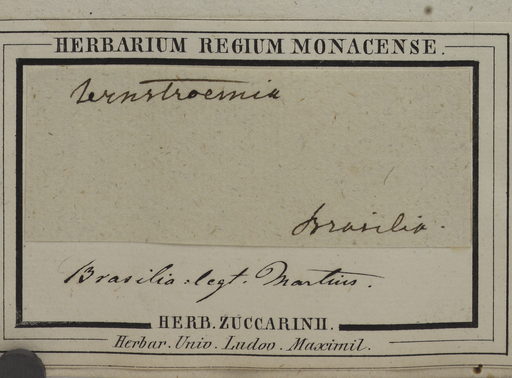 HERBARIUM REGIUM MONACENSE.
Ternstroemia
Brasilia.
Brasilia. legt. Martius.
HERB. ZUCCARINII.
Herbar. Univ. Ludov. Maximil.